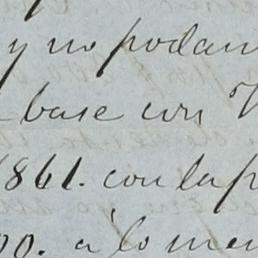 y no podam
base un
1861. con la p
00. a lo men